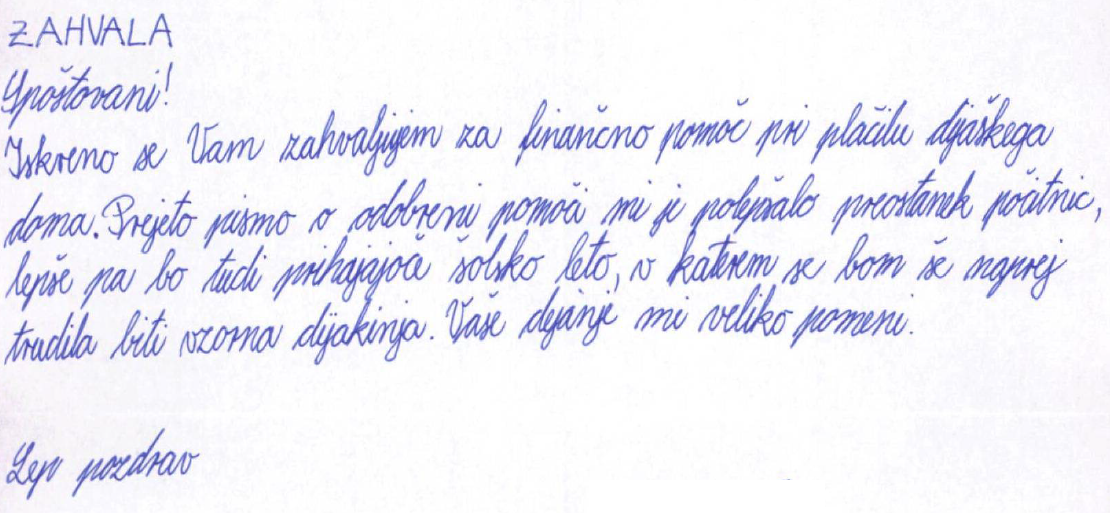 ZAHVALA
Spoštovani!
Iskreno se Vam zahvaljujem za finančno pomoč pri plačilu dijaškega
doma. Prejeto pismo o odobreni pomoči mi je polepšalo preostanek počitnic,
lepše pa bo tudi prihajajoče šolsko leto, v katerem se bom še naprej
trudila biti vzorna dijakinja. Vaše dejanje mi veliko pomeni.
Lep pozdrav